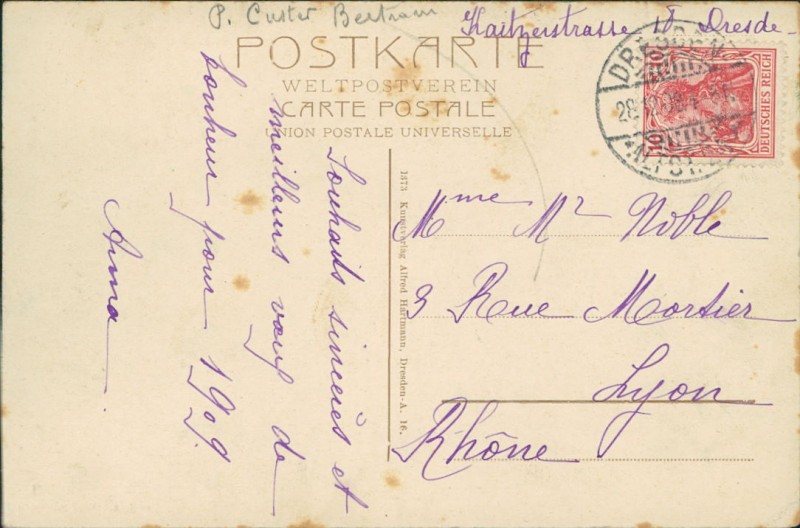 P. Custer Bertram
Kaitzerstrasse Dresde-
POSTKARTE
WELTPOSTVEREIN
CARTE POSTALE
UNION POSTALE UNIVERSELLE
DRESDEN
28.12.08
ALTST.
10
10
DEUTSCHES REICH
Souhaits sincères et
meilleurs vœux de
bonheur pour 1909.
Anna
1373 Kunstverlag Alfred Hartmann, Dresden-A. 16.
Mme Mr Noble
3 Rue Mortier
Lyon
Rhône